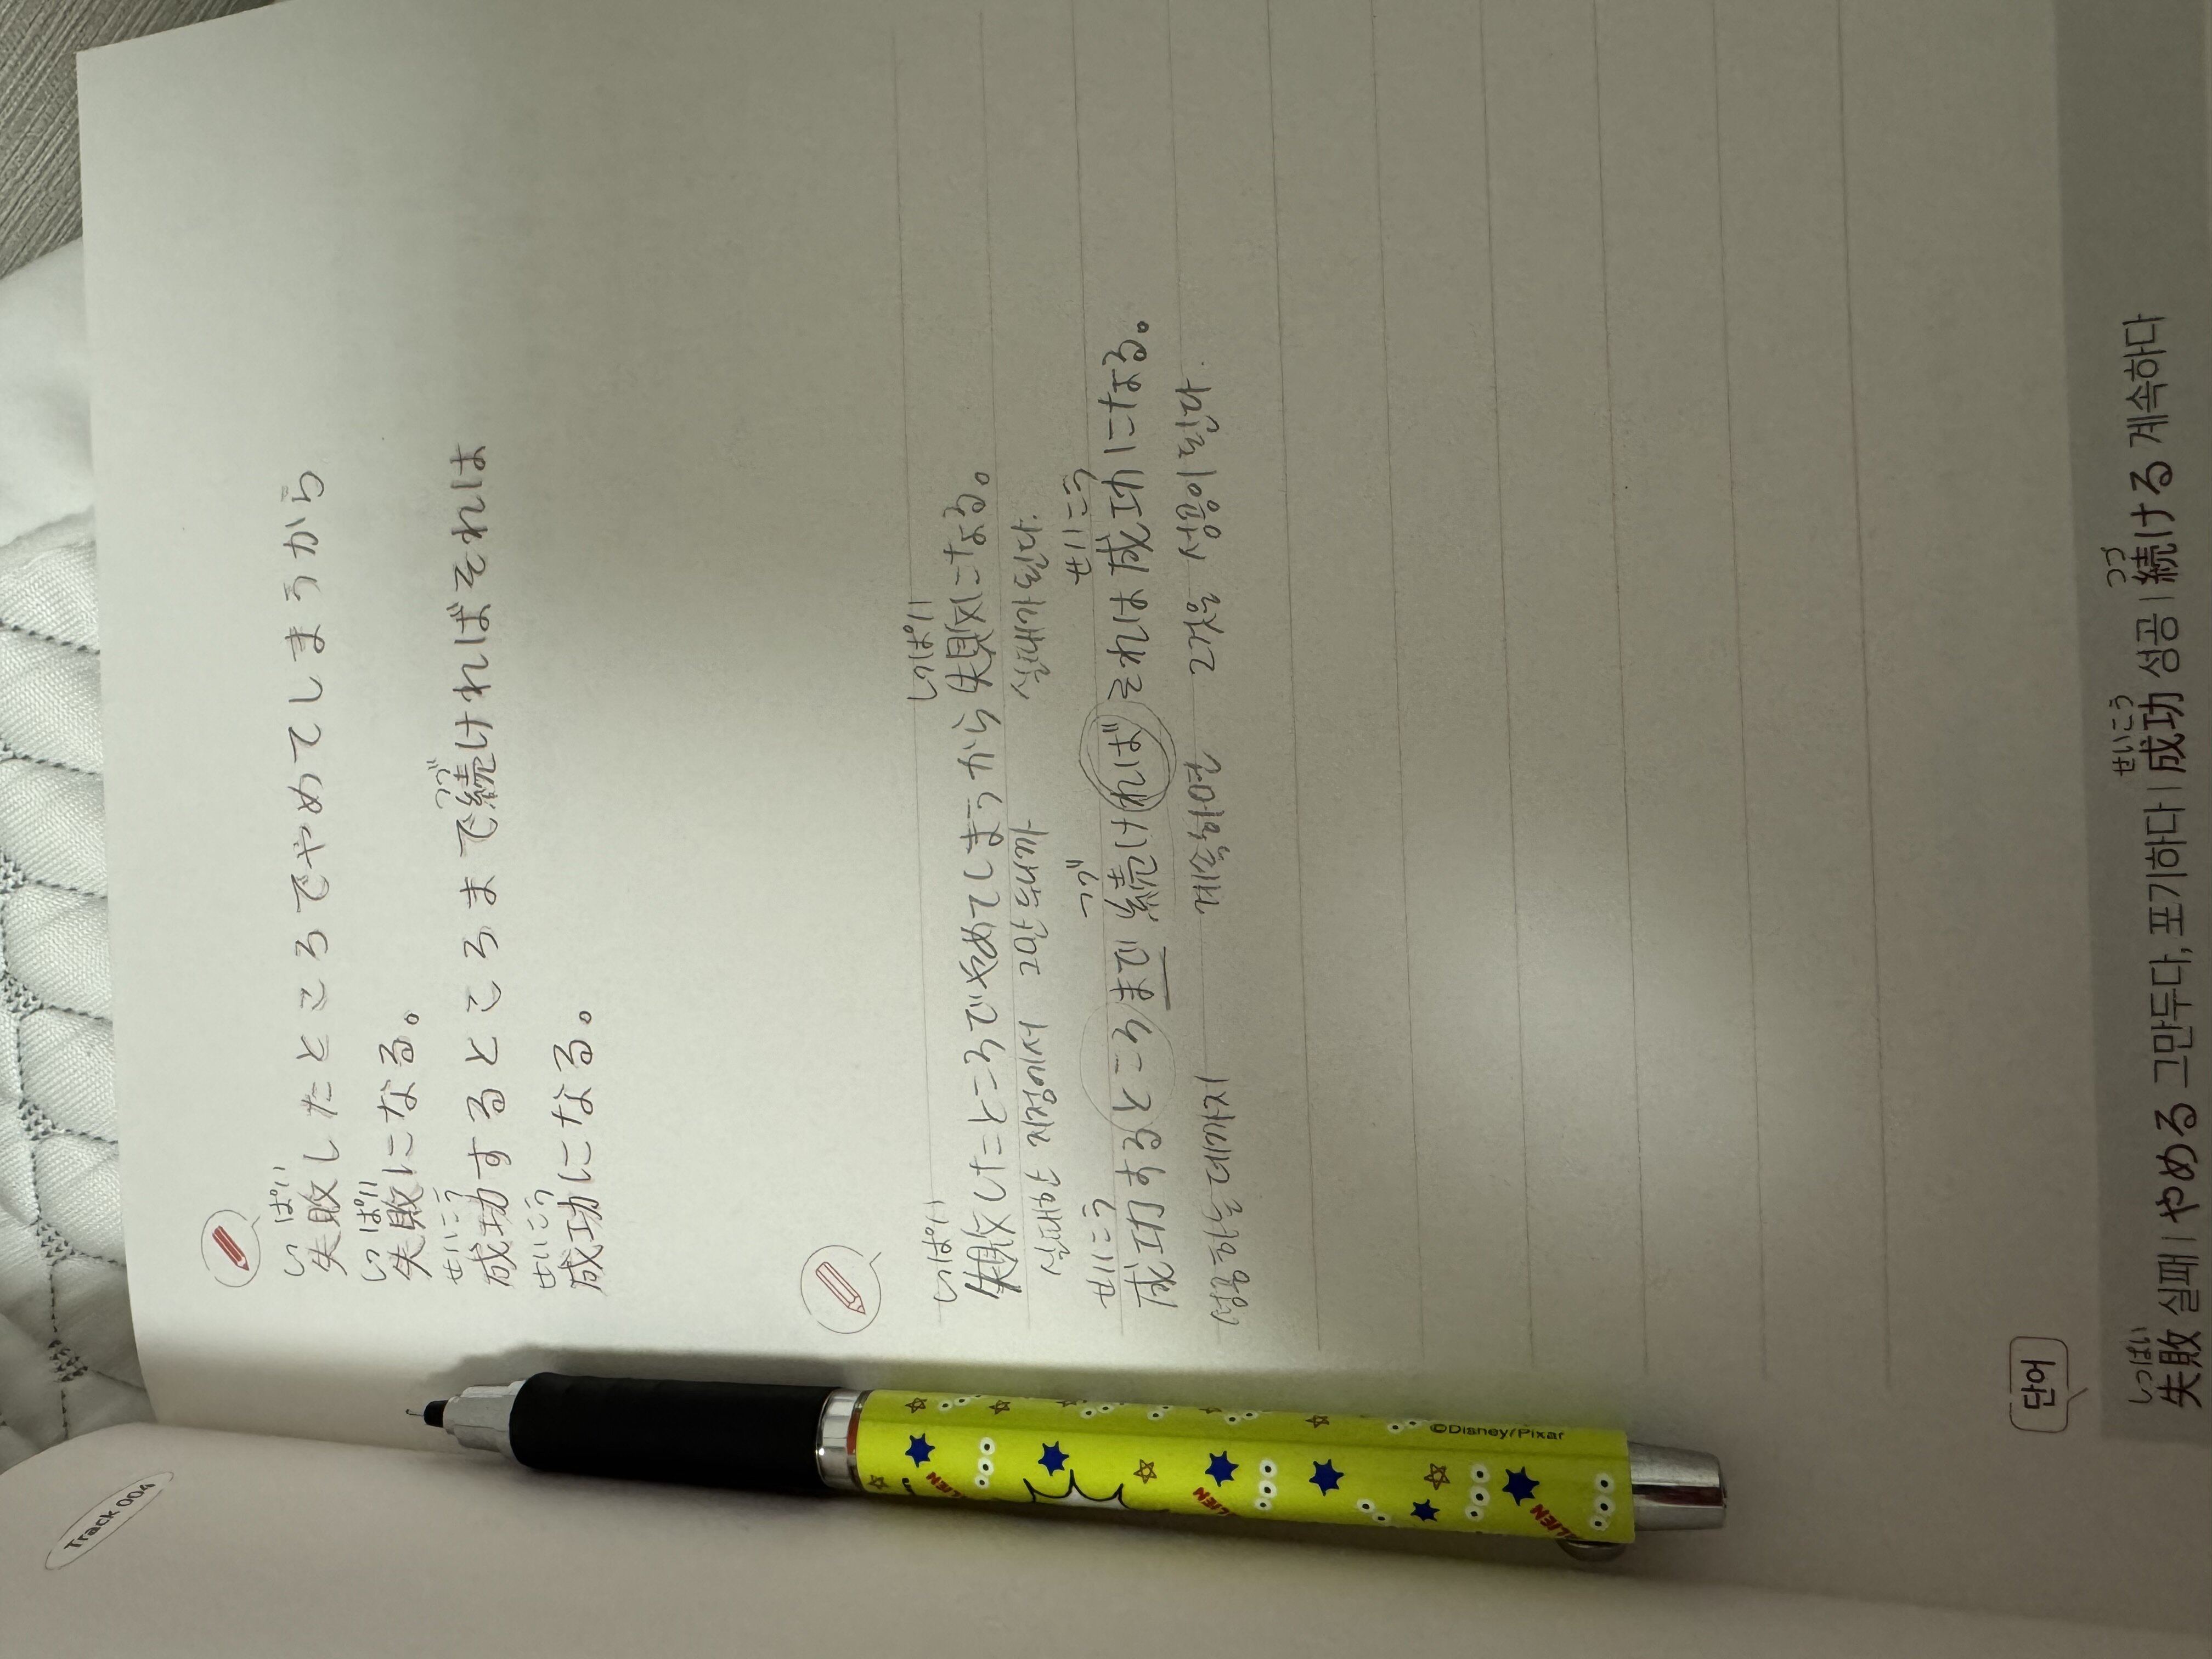 Track 004
しっ ぱい
失敗したところでやめてしまうから
しっ ぱい
失敗になる。
せいこう つづ
成功するところまで続ければそれは
せいこう
成功になる。
しっぱい しっぱい
失敗したところでやめてしまうから失敗になる。
실패한 지점에서 그만 두니까 실패가 된다.
せいこう つづ せいこう
成功するところまで続ければそれは成功になる。
성공하는데까지 계속하면 그건 성공이된다.
단어
しっぱい せいこう つづ
失敗 실패 | やめる 그만두다, 포기하다 | 成功 성공 | 続ける 계속하다
©Disney/Pixar
ALIEN
ALIEN
ALIEN